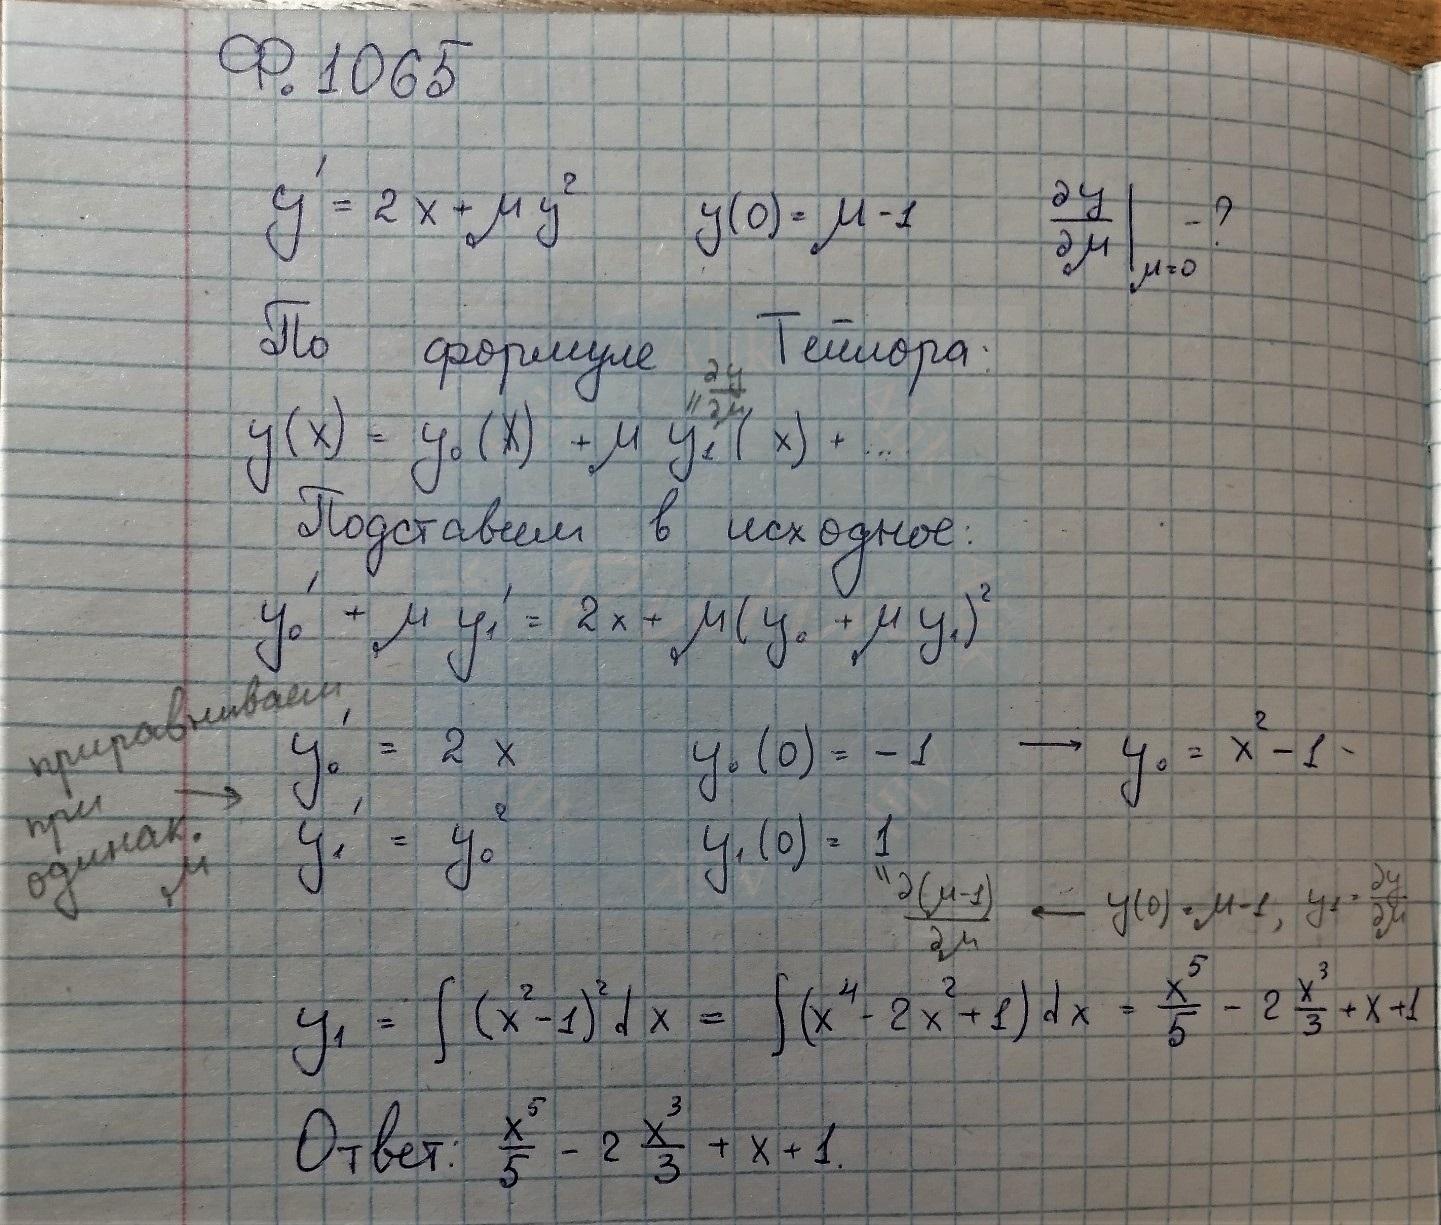 Ф. 1065
y' = 2x + μy² y(0) = μ-1 ∂y/∂μ|μ=0 - ?
По формуле Тейлора:
y(x) = y₀(x) + μ y₁(x) + ...
" ∂y/∂μ
Подставим в исходное:
y₀' + μ y₁' = 2x + μ(y₀ + μ y₁)²
приравниваем
при
одинак.
μ
→
y₀' = 2x y₀(0) = -1 → y₀ = x² - 1
y₁' = y₀² y₁(0) = 1
" ∂(μ-1)/∂μ ← y(0) = μ-1, y₁ = ∂y/∂μ
y₁ = ∫(x²-1)²dx = ∫(x⁴ - 2x² + 1)dx = x⁵/5 - 2 x³/3 + x + 1
Ответ: x⁵/5 - 2 x³/3 + x + 1.